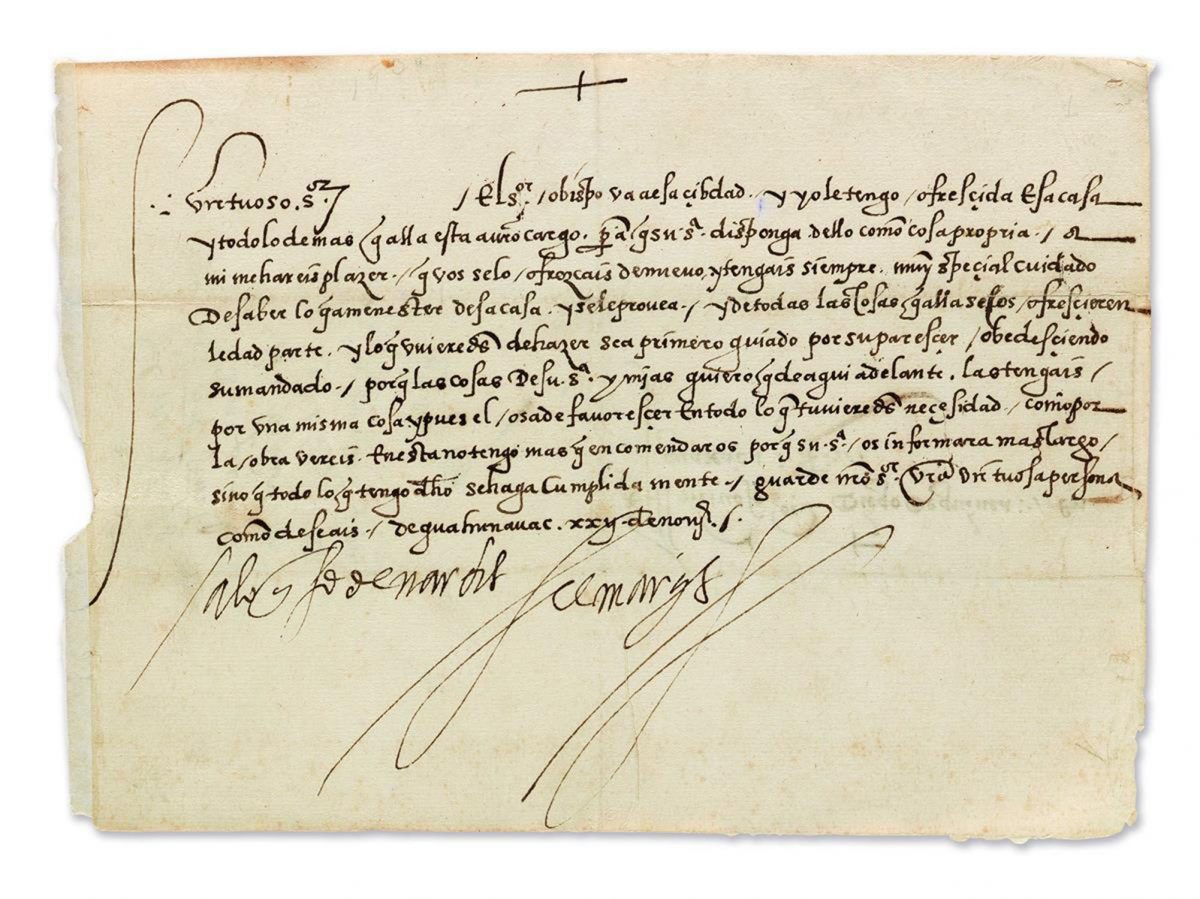 virtuoso .s.or
/ El s.or / obispo va a esa çibdad . y yo le tengo / ofresçida Esa casa
y todo lo demas q̃ alla esta a v̄ro cargo . p̱a q̃ su .s.ª disponga dello como cosa propria ./ a
mi me hareis plazer ./ q̃ vos se lo / ofrezcais de nuevo, y tengais siempre . muy special cuidado
De saber lo q̃ a menester desa casa . y se le provea ./ y de todas las cosas q̃ alla se los / ofresçieren
le dad parte . y lo q̃ uvieredes de hazer sea primero guiado por su paresçer / obedesçiendo
su mandado ./ porq̃ las cosas De su .s.ª y mias quiero q̃ de aqui adelante . las tengais /
por una misma cosa y pues el / os a de favoresçer En todo lo q̃ tuvieredes neçesidad ./ como por
la / obra vereis . En esta no tengo mas q̃ encomendaros porq̃ su .s.ª / os informara mas largo /
sino q̃ todo lo q̃ tengo dho se haga Cumplidamente ./ guarde nr̃o s.or vr̃a virtuosa persona
como deseais ./ de guahunavac . xxv de nouỹ ./.
el marq̃s